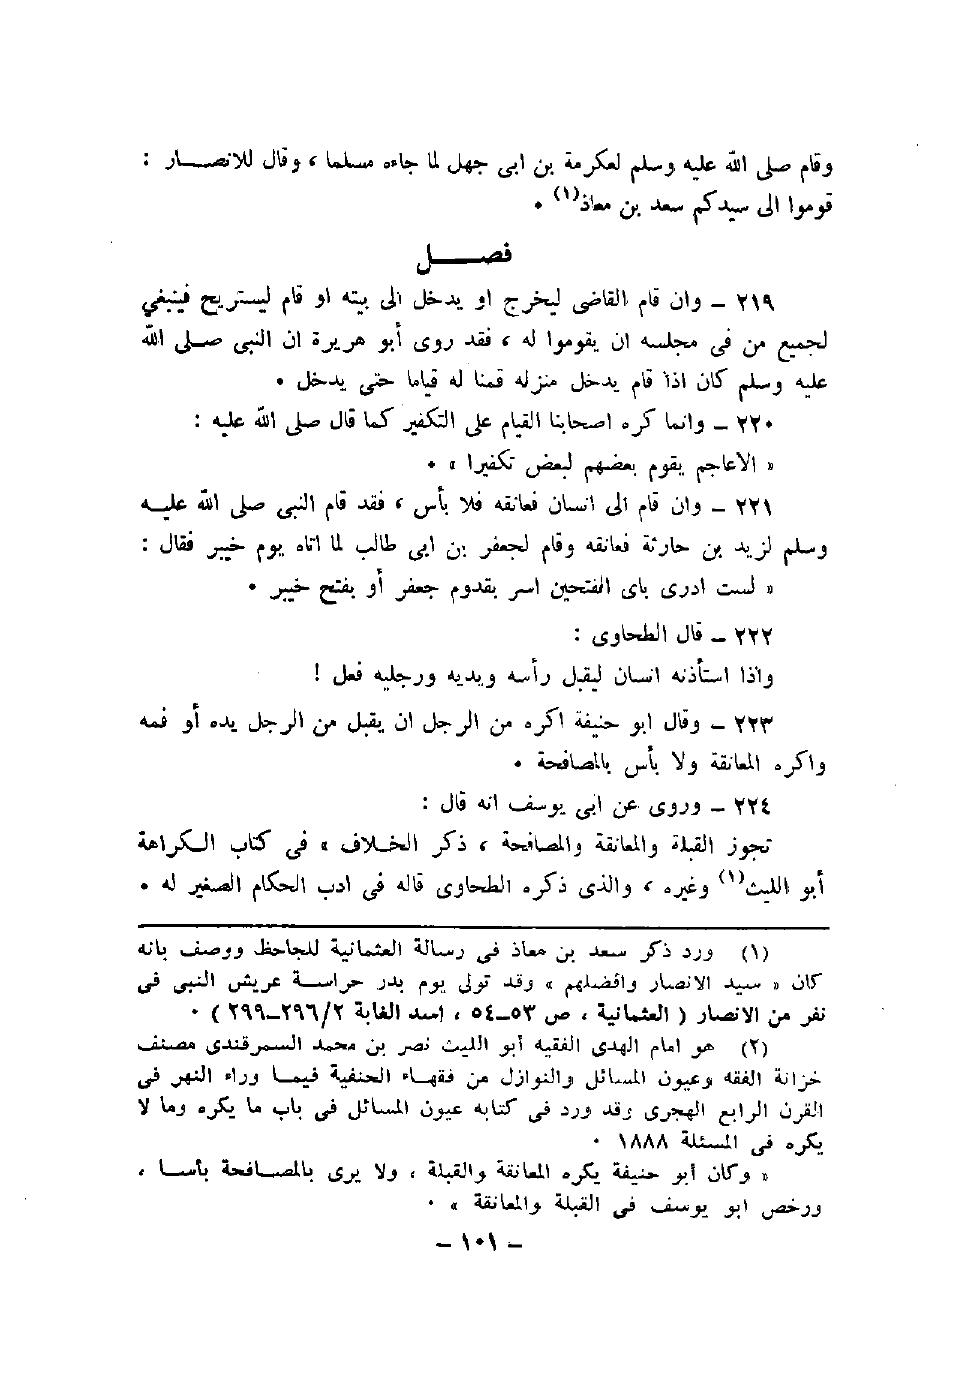 وقام صلى الله عليه وسلم لعكرمة بن ابى جهل لما جاءه مسلما ، وقال للانصـــار :
قوموا الى سيدكم سعد بن معاذ(١) ٠
فصــــل
٢١٩ ــ وان قام القاضى ليخرج او يدخل الى بيته او قام ليستريح فينبغي
لجميع من فى مجلسه ان يقوموا له ، فقد روى أبو هريرة ان النبى صــلى الله
عليه وسلم كان اذا قام يدخل منزله قمنا له قياما حتى يدخل ٠
٢٢٠ ــ وانما كره اصحابنا القيام على التكفير كما قال صلى الله عليه :
« الاعاجم يقوم بعضهم لبعض تكفيرا » ٠
٢٢١ ــ وان قام الى انسان فعانقه فلا بأس ، فقد قام النبى صلى الله عليــه
وسلم لزيد بن حارثة فعانقه وقام لجعفر بن ابى طالب لما اتاه يوم خيبر فقال :
« لست ادرى باى الفتحين اسر بقدوم جعفر أو بفتح خيبر ٠
٢٢٢ ــ قال الطحاوى :
واذا استأذنه انسان ليقبل رأسه ويديه ورجليه فعل !
٢٢٣ ــ وقال ابو حنيفة اكره من الرجل ان يقبل من الرجل يده أو فمه
واكره المعانقة ولا بأس بالمصافحة ٠
٢٢٤ ــ وروى عن ابى يوسف انه قال :
تجوز القبلة والمعانقة والمصافحة ، ذكر الخــلاف » فى كتاب الــكراهة
أبو الليث(١) وغيره ، والذى ذكره الطحاوى قاله فى ادب الحكام الصغير له ٠
(١) ورد ذكر سعد بن معاذ فى رسالة العثمانية للجاحظ ووصف بانه
كان « سيد الانصار وافضلهم » وقد تولى يوم بدر حراســة عريش النبى فى
نفر من الانصار ( العثمانية ، ص ٥٣ــ٥٤ ، اسد الغابة ٢/٢٩٦ــ٢٩٩ ) ٠
(٢) هو امام الهدى الفقيه أبو الليث نصر بن محمد السمرقندى مصنف
خزانة الفقه وعيون المسائل والنوازل من فقهــاء الحنفية فيمــا وراء النهر فى
القرن الرابع الهجرى وقد ورد فى كتابه عيون المسائل فى باب ما يكره وما لا
يكره فى المسئلة ١٨٨٨ ٠
« وكان أبو حنيفة يكره المعانقة والقبلة ، ولا يرى بالمصــافحة بأســا ،
ورخص ابو يوسف فى القبلة والمعانقة » ٠
ــ ١٠١ ــ